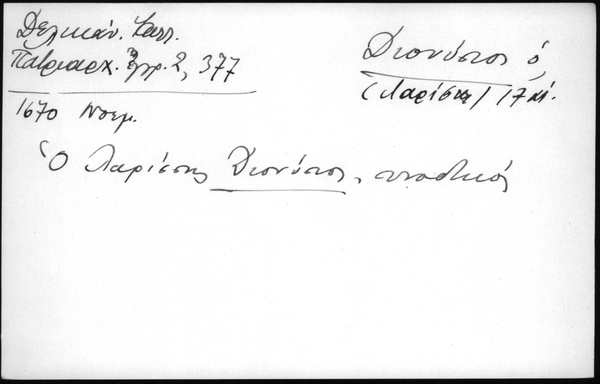 Δελικάν. Καλλ.
Πατριαρχ. Ἔγγρ. 2, 377
1670 Νοεμ.
Διονύσιος ὁ,
(Λαρίσης) 17 αἰ.
Ὁ Λαρίσσης Διονύσιος, συνοδικός